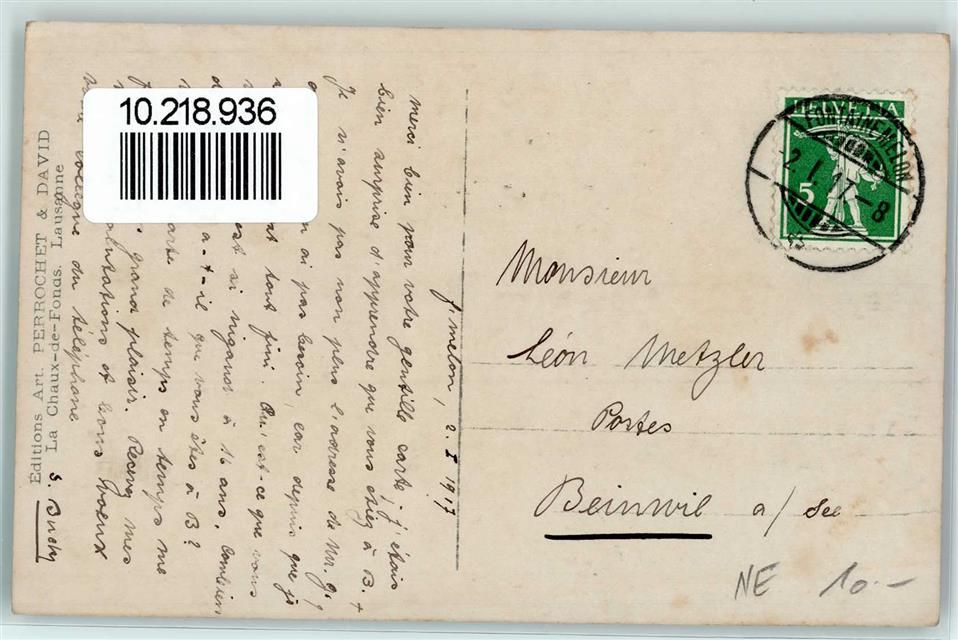 10.218.936
Éditions Art. PERROCHET & DAVID
La Chaux-de-Fonds. Lausanne
HELVETIA
5
FONTAINEMELON
2. I. 17 – 8
f'melon, 2. I 1917
Merci bien pour votre gentille carte; j'étais
bien surprise d'apprendre que vous étiez à B. +
Je n'avais pas non plus l'adresse de Mr. G.,
n ai pas besoin, car depuis que j
at tout fini. Qu'est-ce que vous
est si nigaud à 16 ans. Combien
a-t-il que vous êtes à B?
arte de temps en temps me
grand plaisir. Recevez mes
alutations et bons voeux
collègue du téléphone
S. Buchy
Monsieur
Léon Metzler
Postes
Beinwil a/ See
NE 10.–